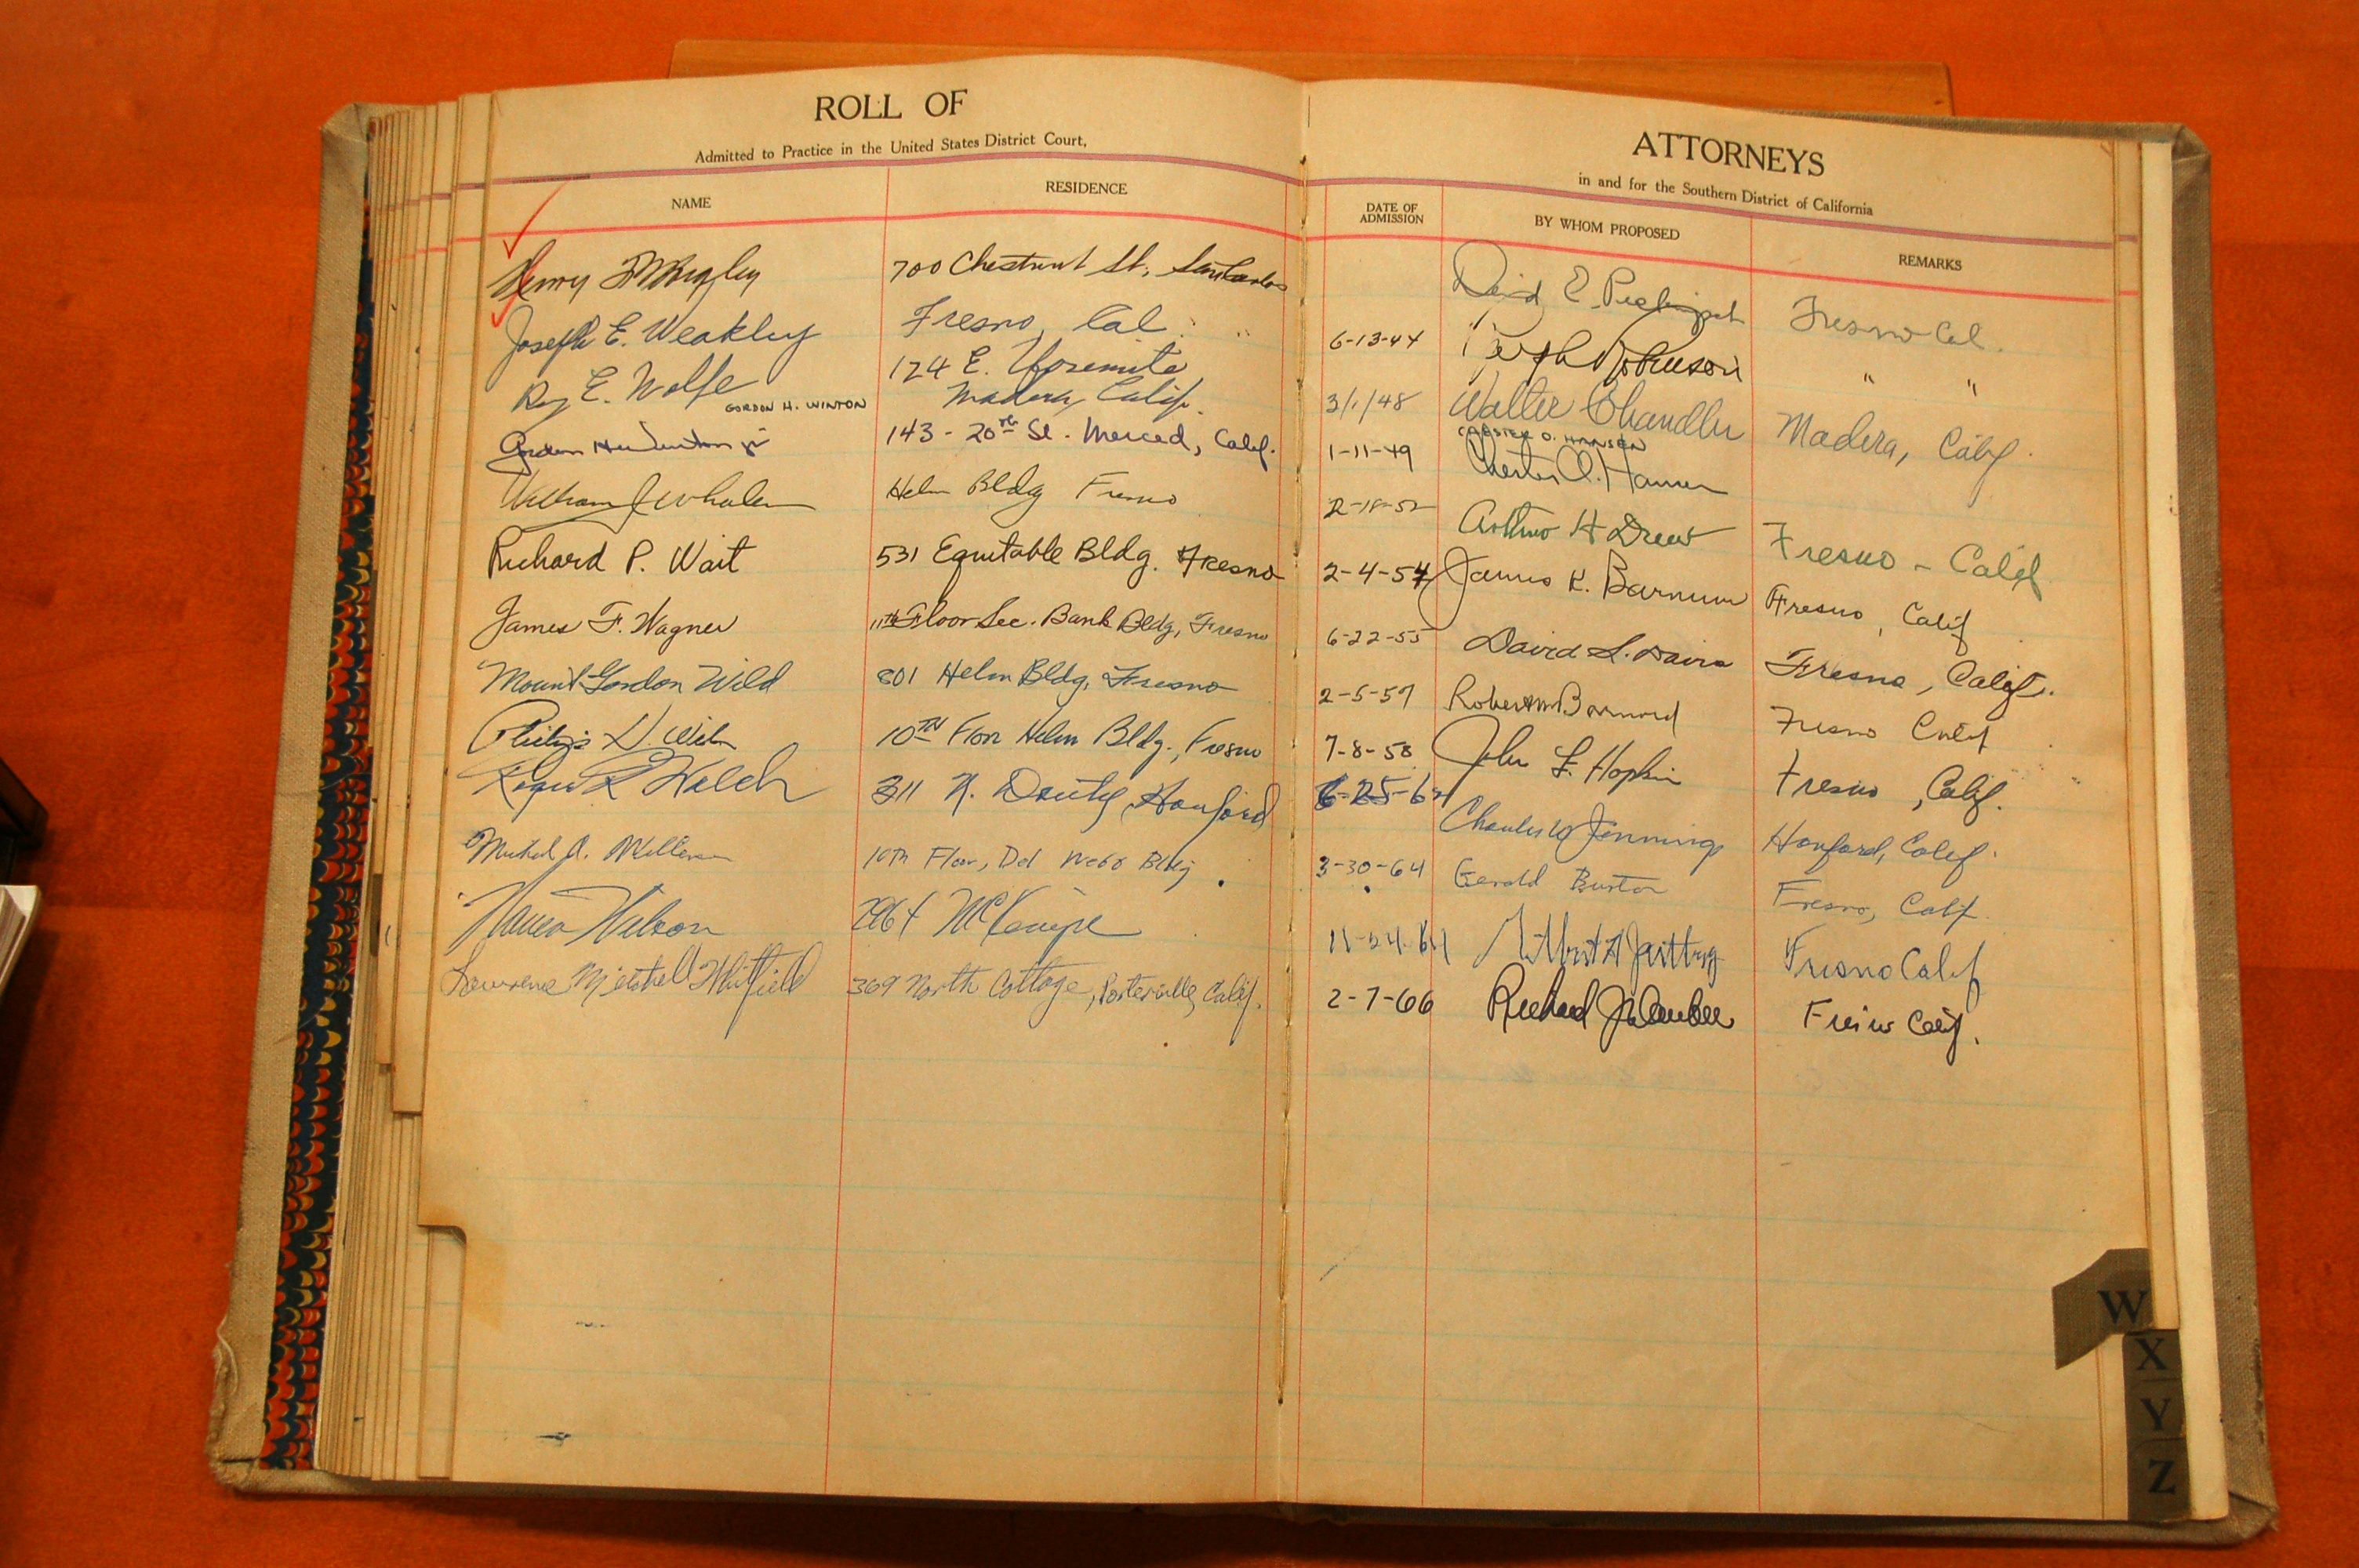 ROLL OF
Admitted to Practice in the United States District Court,
NAME RESIDENCE
Henry 700 Chestnut St., San Carlos
Joseph E. Weakley Fresno, Cal. " "
Roy E. Wolfe 124 E. Yosemite
GORDON H. WINTON Madera, Calif.
Gordon H Winton jr 143 - 20th St. Merced, Calif.
William J Whalen Helm Bldg Fresno
Richard P. Wait 531 Equitable Bldg. Fresno
James F. Wagner 11th Floor Sec. Bank Bldg, Fresno
Mount Gordon Wild 801 Helm Bldg, Fresno
Philip 10TH Flor Helm Bldg., Fresno
Roger L Welch 311 N. Douty Hanford
Michael A. 10th Floor, Del Webb Bldg
Wilson McKenzie
Lawrence Mitchell Whitfield 369 North Cottage, Porterville, Calif.
ATTORNEYS
in and for the Southern District of California
DATE OF ADMISSION BY WHOM PROPOSED REMARKS
David E. Peckinpah Fresno Cal.
6-13-44 Robinson " "
3/1/48 Walter Chandler Madera, Calif.
CHESTER O. HANSEN
1-11-49 Chester O. Hansen
2-18-52 Arthur H Drew Fresno - Calif
2-4-54 James K. Barnum Fresno, Calif
6-22-55 David L. Davis Fresno, Calif.
2-5-57 Robert M Barnard Fresno Calif
7-8-58 John F. Hopkin Fresno, Calif.
6-25-62 Charles W Jennings Hanford, Calif.
3-30-64 Gerald Burton Fresno, Calif.
11-24-64 Fresno Calif
2-7-66 Richard Fresno Calif.
W
X
Y
Z